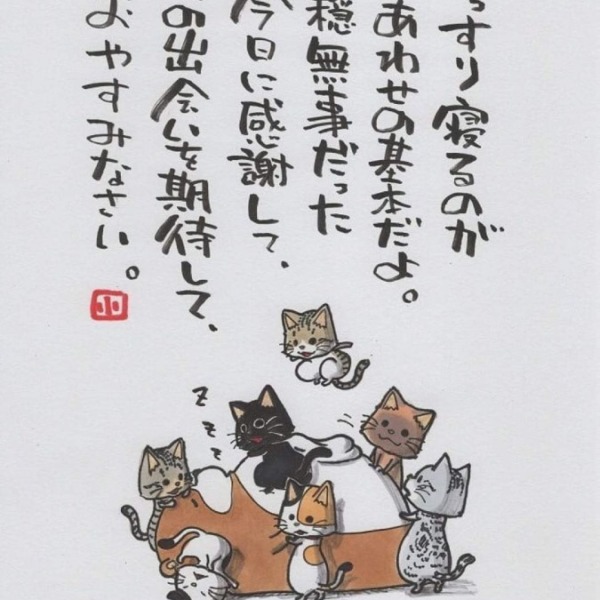 っすり寝るのが
あわせの基本だよ。
穏無事だった
今日に感謝して、
の出会いを期待して、
おやすみなさい。
z z z z